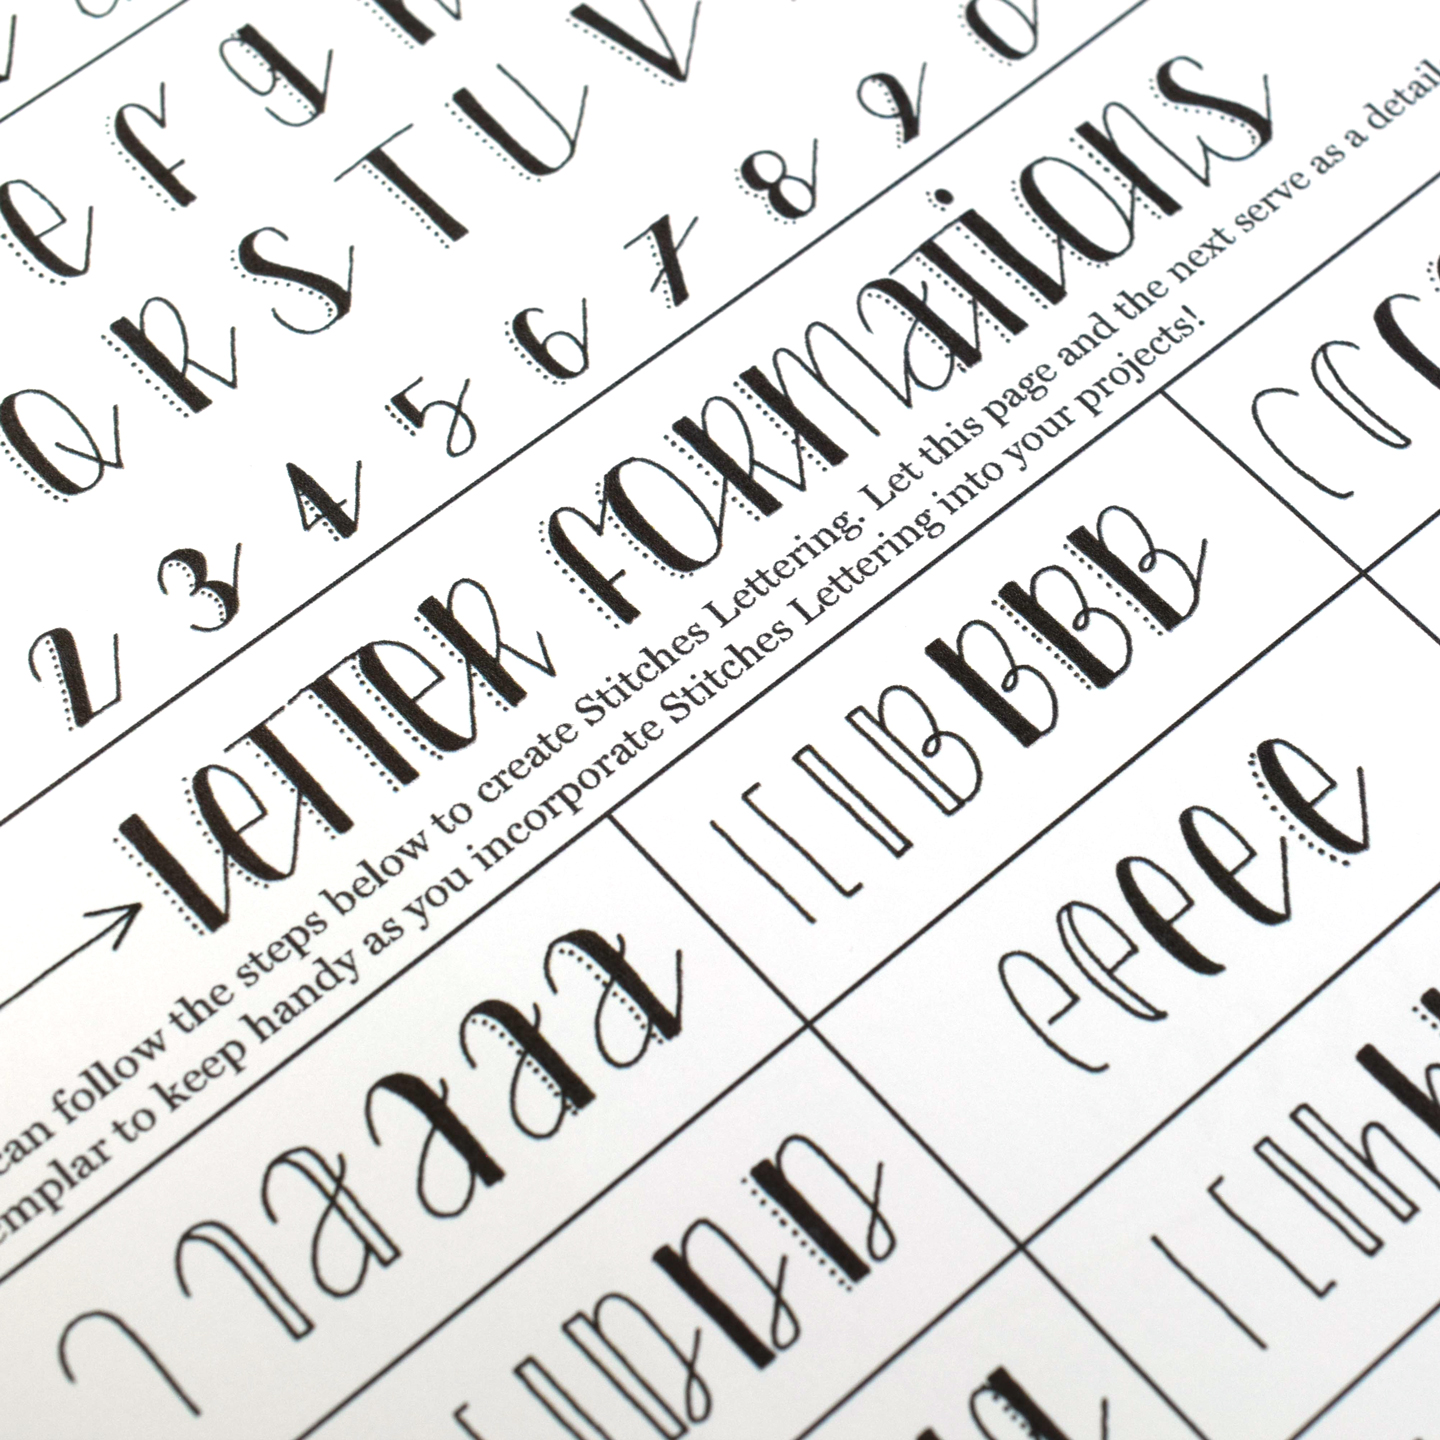 e f g
Q R S T U V
2 3 4 5 6 7 8 9 0
LETTER FORMATIONS
can follow the steps below to create Stitches Lettering. Let this page and the next serve as a detail
emplar to keep handy as you incorporate Stitches Lettering into your projects!
a a a a a
B B B B B
e e e e e
D D D
h h